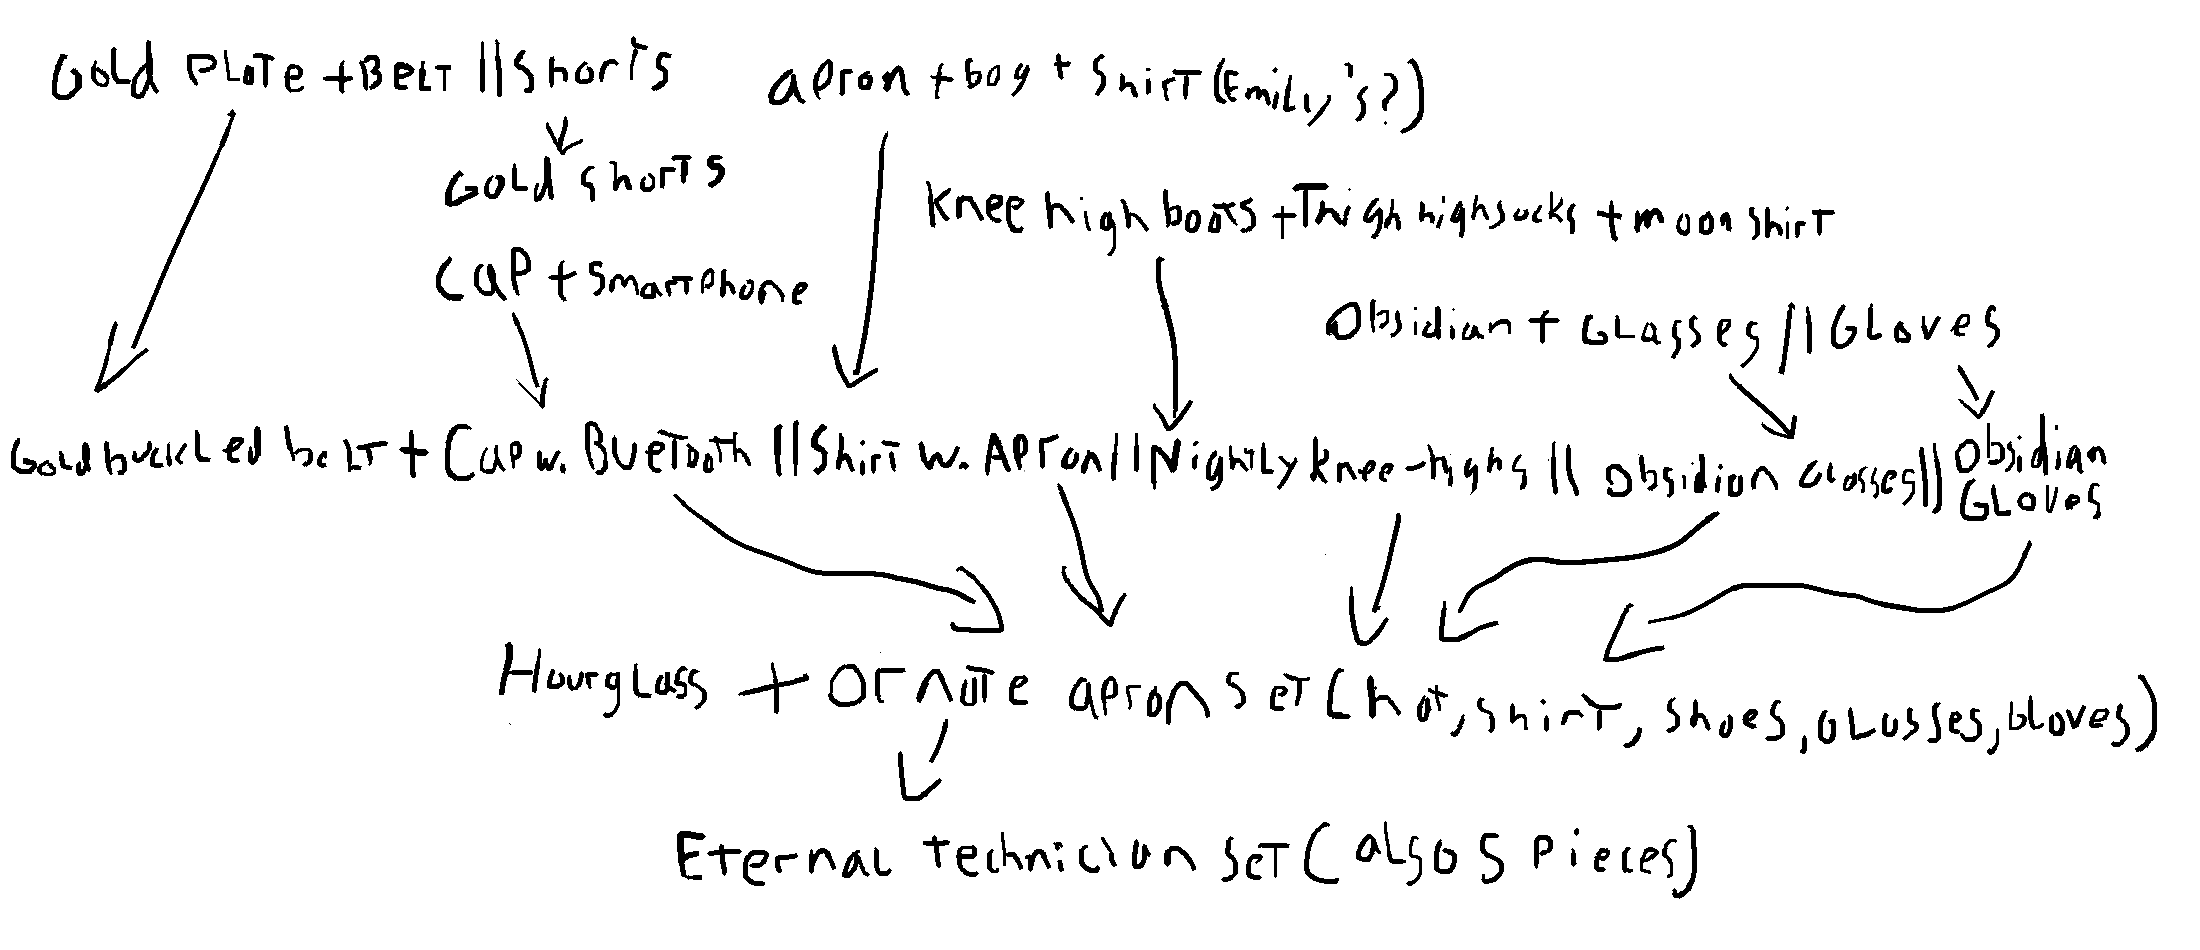 Gold Plate + Belt || Shorts
apron + bag + Shirt (Emily's?)
Gold shorts
Knee high boots + Thigh highsocks + moon shirt
Cap + Smartphone
Obsidian + Glasses || Gloves
Gold buckled belt + Cap w. Buetooth || Shirt w. Apron || Nightly knee-highs || Obsidian Glasses || Obsidian
Gloves
Hourglass + Ornate apron set (hat, shirt, shoes, glasses, gloves)
Eternal technician set (also 5 pieces)